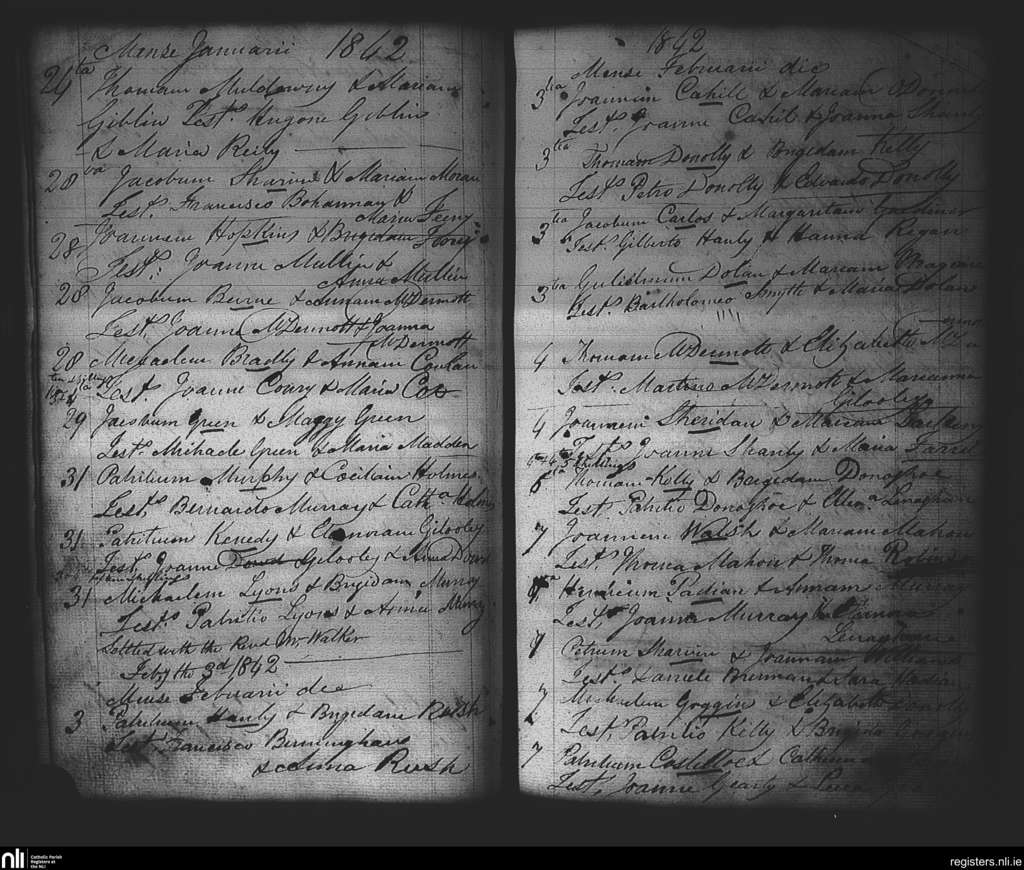 Mense Januarii 1842
24ta Thomam Muldowny & Mariam
Giblin Tests. Hugone Giblin
& Maria Reily
28va Jacobum Sharvin & Mariam Moran
Test. Francisco Bohannan &
Maria Feeny
28 Joannem Hopkins & Brigedam
Test: Joanne Mullin &
Anna Mullin
28 Jacobum Beirne & Annam McDermott
Test. Joanne McDermott & Joanna
McDermott
28 Michaelem Bradly & Annam Conlan
Test. Joanne Conry & Maria Cox
29 Jacobum Green & Maggy Green
Test. Mihaele Green & Maria Madden
31 Patritium Murphy & Ceciliam Holmes
Test. Bernardo Murray & Cath.a Holmes
31 Patritium Kenedy & Elenoram Gilooley
Test. Joanne Gilooley & Anna Dowd
31 Michaelem Lyons & Brigedam Murray
Test. Patritio Lyons & Anna Murray
Settled with the Revd. Mr. Walker
Feby the 3d 1842
Mense Februarii die
3 Patritium Hanly & Brigedam Rush
Test. Francisco Bermingham
& Anna Rush
1842
Mense Februarii die
3tia Joannem Cahill & Mariam ODonnel
Test. Joanne Cahil & Joanna Shanly
3tia Thomam Donolly & Brigedam Kelly
Test. Petro Donolly & Edvardo Donolly
3tia Jacobum Carlos & Margaritam Gardiner
Test. Gilberto Hanly & Hanna Regan
3tia Gulielmum Dolan & Mariam
Test. Bartholomeo Smyth & Maria Dolan
4 Thomam McDermott & Elizabetha
Test. Martino McDermott & Marianna
Gilooley
4 Joannem Sheridan & Mariam
Test. Joanne Shanly & Maria Farrel
5 Shillings
6 Thomam Kelly & Brigedam Donoghoe
Test. Patritio Donoghoe & Ellena Lenaghan
7 Joannem Walsh & Mariam Mahon
Test. Thoma Mahon & Thoma
Henricum Padian & Annam Murray
Test. Joanne Murray &
Lenaghan
9 Petrum Sharvin & Joannam Williams
Test. Daniele Brennan & Sara Padian
7 Michaelem Goggin & Elizabeth Donolly
Test. Patritio Kelly & Brigida
7 Patritium Costelloe &
Test. Joanne Gearty &
nli
Catholic Parish
Registers at
the NLI
registers.nli.ie